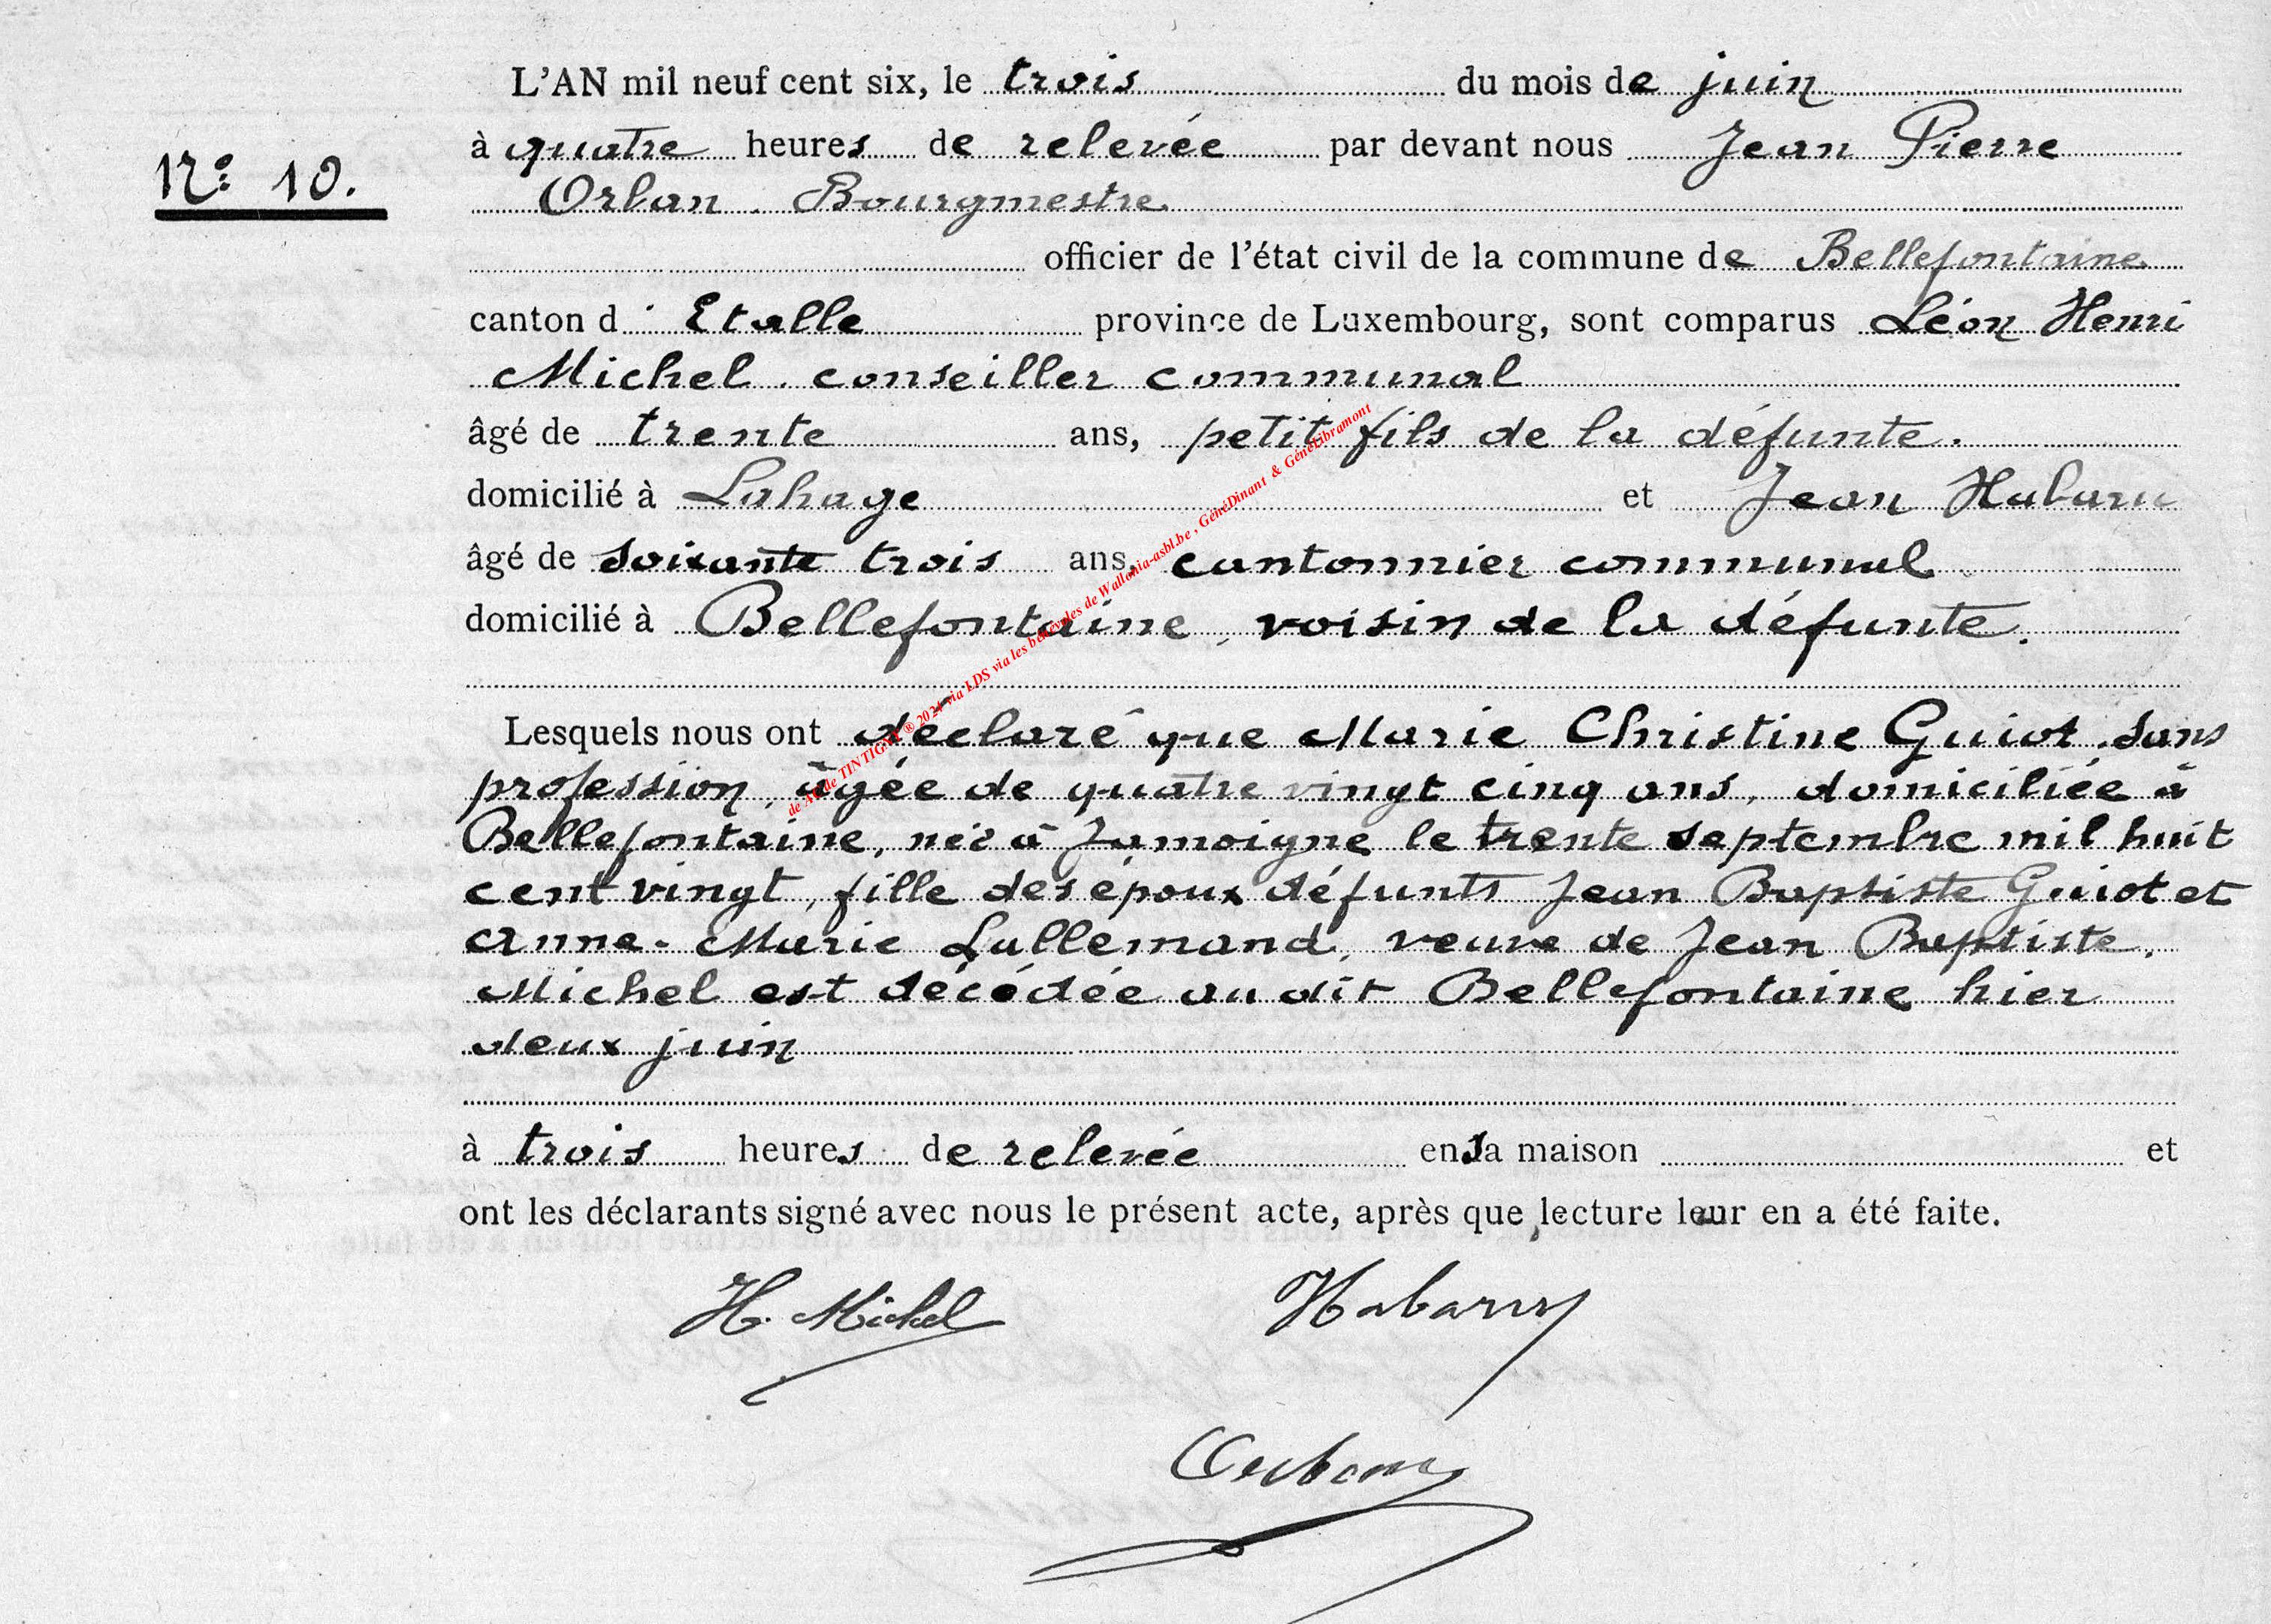 L'AN mil neuf cent six, le trois du mois de juin
à quatre heures de relevée par devant nous Jean Pierre
N° 10.
Orban. Bourgmestre
officier de l'état civil de la commune de Bellefontaine
canton d' Etalle province de Luxembourg, sont comparus Léon Henri
Michel. conseiller communal
âgé de trente ans, petit fils de la défunte.
domicilié à Lahage et Jean Habaru
âgé de soixante trois ans, cantonnier communal
domicilié à Bellefontaine, voisin de la défunte.
Lesquels nous ont déclaré que Marie Christine Guiot. sans
profession, âgée de quatre vingt cinq ans, domiciliée à
Bellefontaine, née à Jamoigne le trente septembre mil huit
cent vingt, fille des époux défunts Jean Baptiste Guiot et
Anne-Marie Lallemand, veuve de Jean Baptiste.
Michel est décédée au dit Bellefontaine hier
deux juin
à trois heures de relevée en sa maison et
ont les déclarants signé avec nous le présent acte, après que lecture leur en a été faite.
H. Michel Habaru
Orban
de AC de TINTIGNY ® 2024 via LDS via les bénévoles de Wallonia-asbl.be, GénéDinant & GénéLibramont